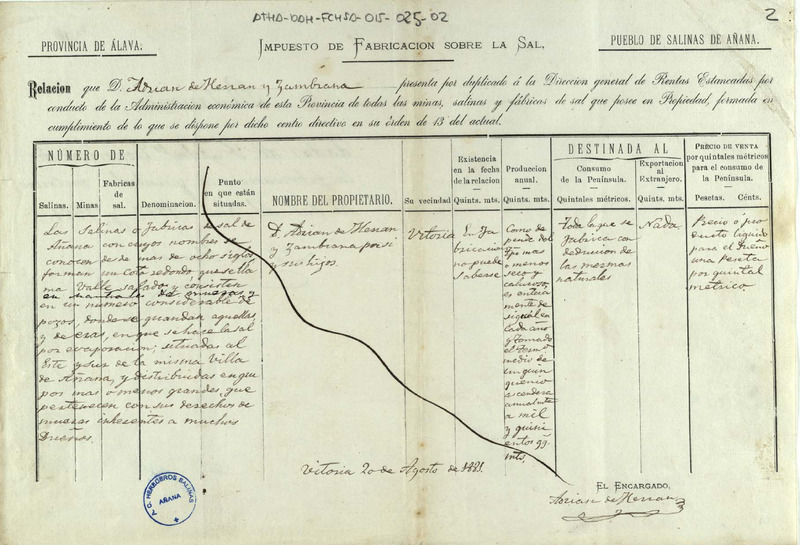 ATHA-DAH-FCHSA-015-025-02
2
PROVINCIA DE ÁLAVA.
IMPUESTO DE FABRICACION SOBRE LA SAL.
PUEBLO DE SALINAS DE AÑANA.
Relacion que D. Adrian de Herran y Zambrana presenta por duplicado á la Direccion general de Rentas Estancadas por
conducto de la Administracion económica de esta Provincia de todas las minas, salinas y fábricas de sal que posee en Propiedad, formada en
cumplimiento de lo que se dispone por dicho centro directivo en su órden de 13 del actual.
NÚMERO DE
Salinas.
Minas
Fabricas
de
sal.
Denominacion.
Punto
en que están
situadas.
NOMBRE DEL PROPIETARIO.
Su vecindad
Existencia
en la fecha
de la relacion
Quints. mts.
Produccion
anual.
Quints. mts.
DESTINADA AL
Consumo
de la Península.
Quintales métricos.
Exportacion
al
Extranjero.
Quints. mts.
PRECIO DE VENTA
por quintales métricos
para el consumo de
la Península.
Pesetas. Cénts.
Las Salinas o Fabricas de sal de
Añana con cuyos nombres se
conocen desde mas de ocho siglos
forman un Coto redondo, que se lla
ma Valle salado y consisten
en manantiales de mueras y
en un número considerable de
pozos, donde se guardan aquellas,
y de eras, en que se hace la sal
por evaporacion; situadas al
Este y sur de la misma Villa
de Añana, y distribuidas en gru
pos mas o menos grandes, que
pertenecen con sus derechos de
mueras inherentes a muchos
Dueños.
D. Adrian de Herran
y Zambrana por si
y sus hijos
Vitoria
En fa
bricacion
no puede
saberse
Como de
pende del
tpo mas
o menos
seco y
caluroso,
es entera
mente de
sigual en
cada año
y tomado
el termino
medio de
un quin
quenio
ascendera
anualmente
a mil
y quini
entos qq.
mts.
Toda la que se
fabrica con
deduccion de
las mermas
naturales
Nada
Precio o pro
ducto liquido
para el Dueño
una peseta
por quintal
metrico.
Vitoria 20 de Agosto de 1881.
EL ENCARGADO,
Adrian de Herran
P. C. HEREDEROS SALINAS
AÑANA